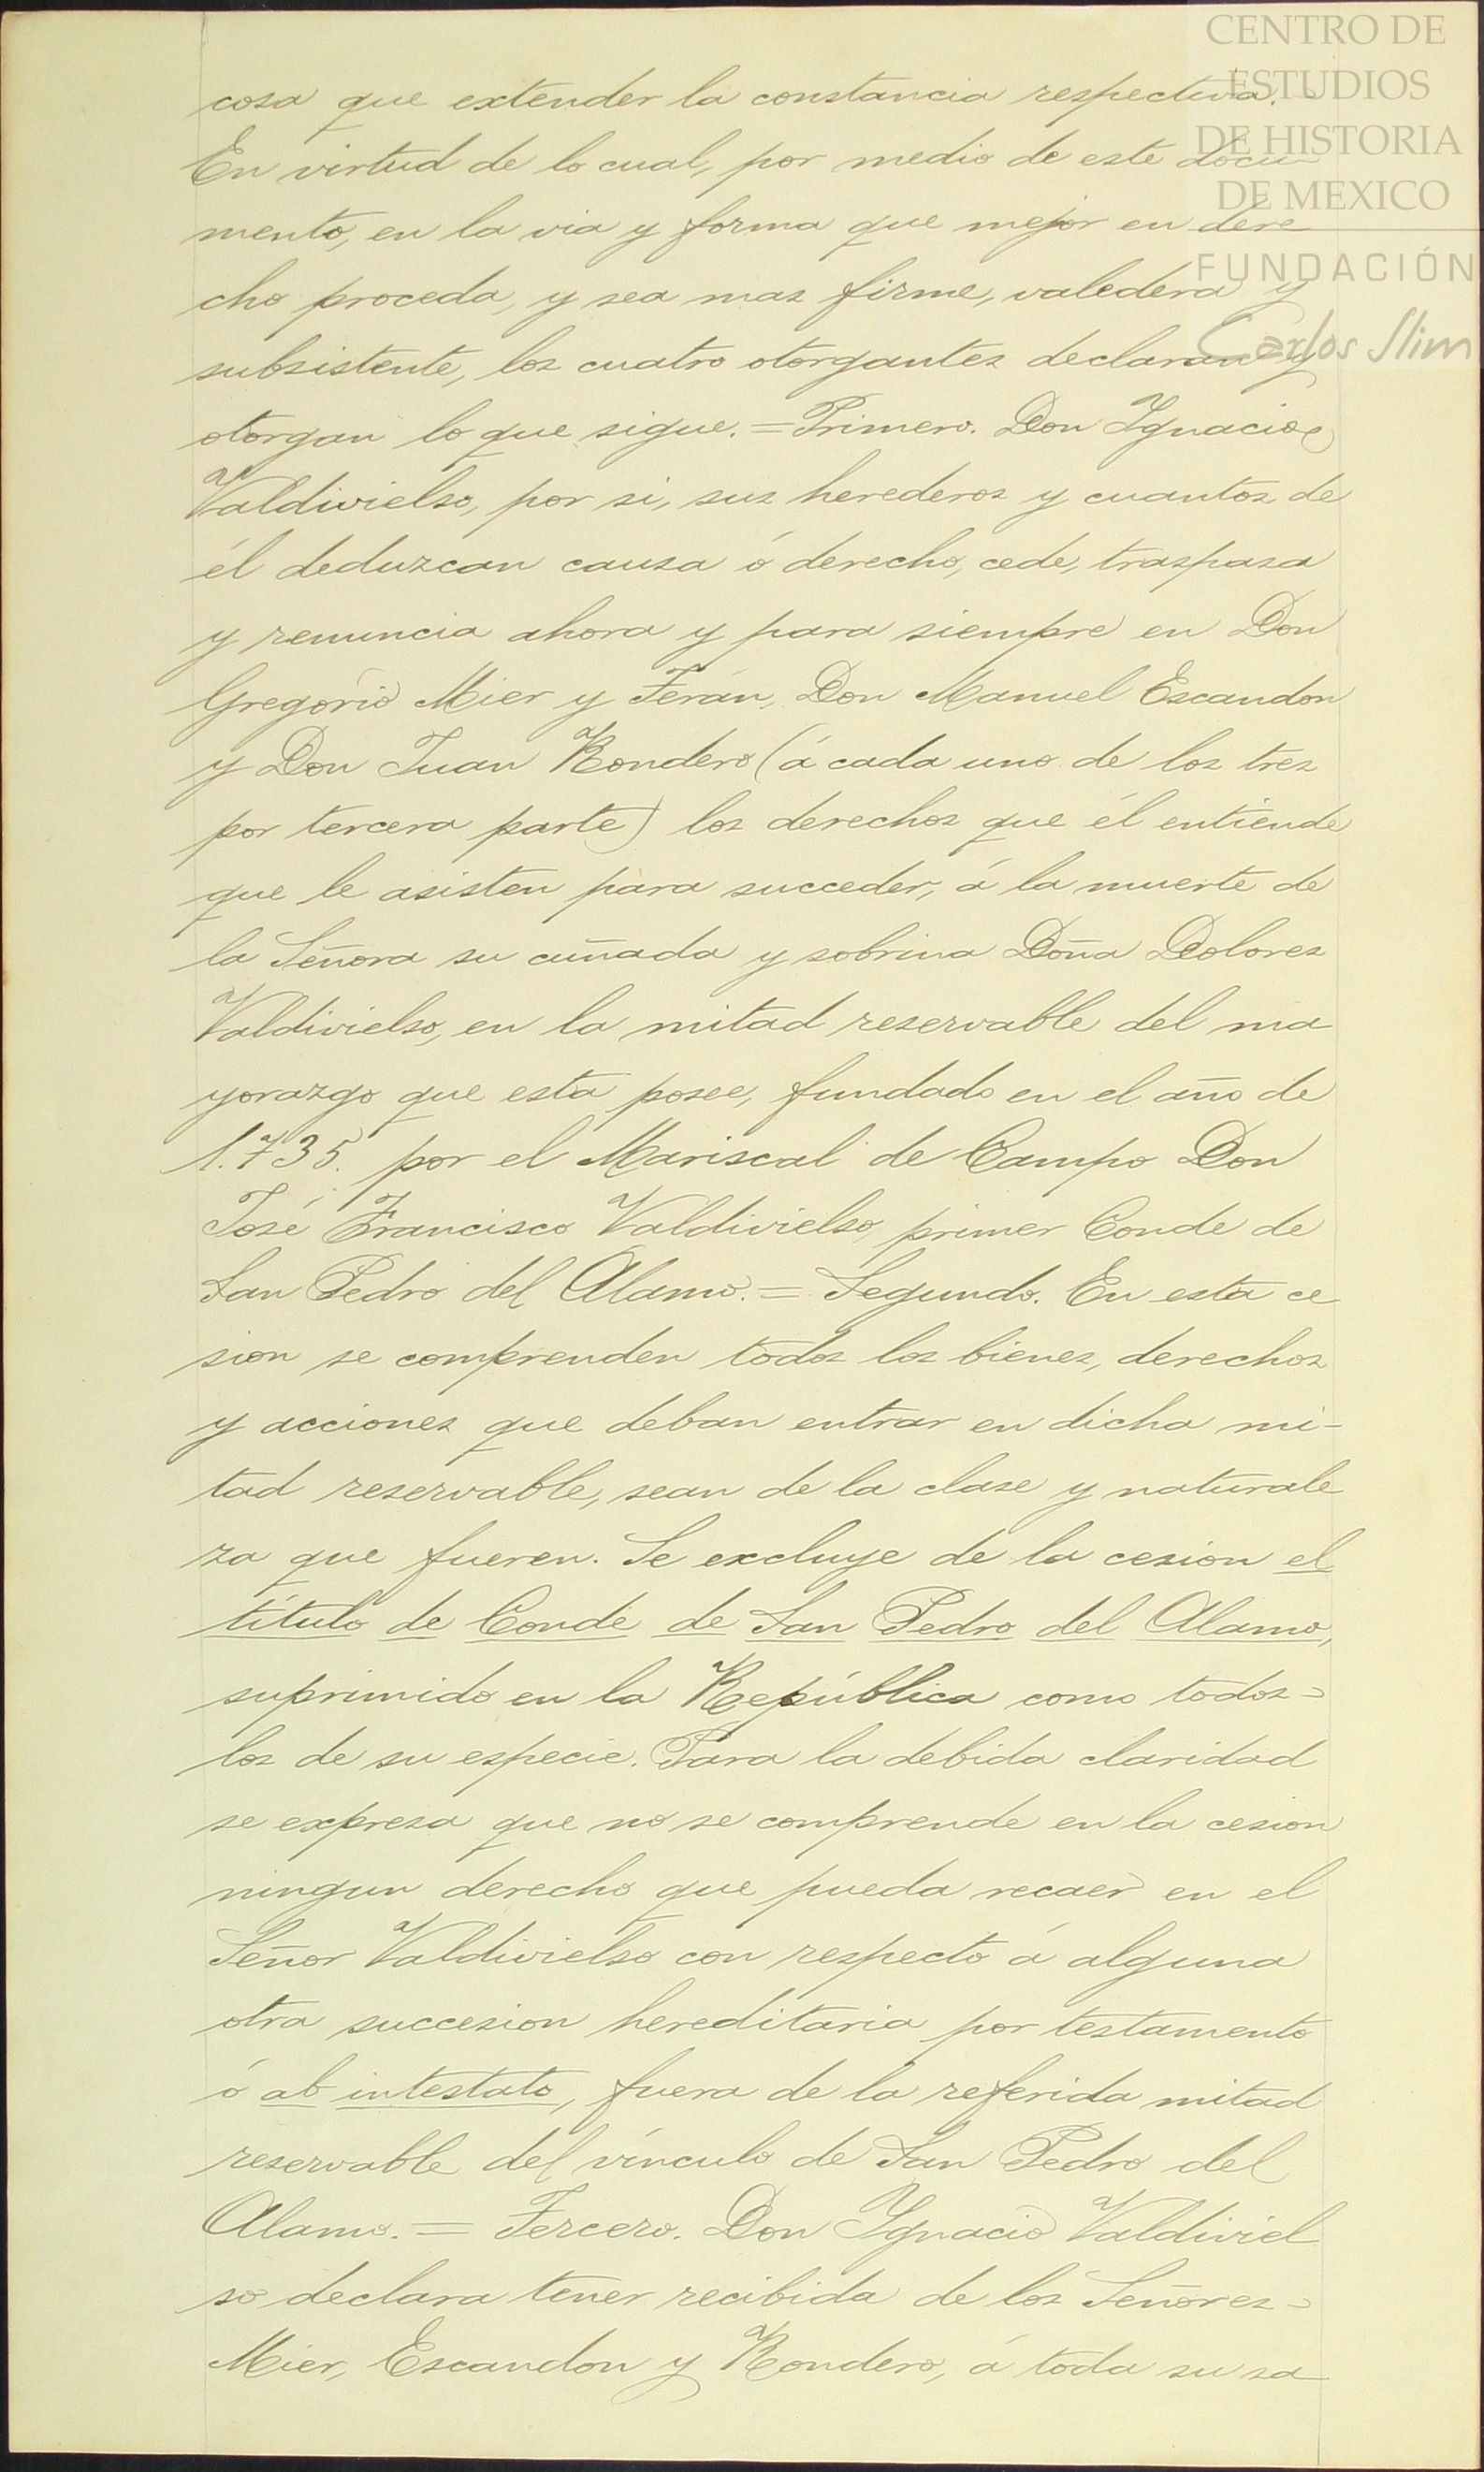 CENTRO DE
ESTUDIOS
DE HISTORIA
DE MEXICO
FUNDACIÓN
Carlos Slim
cosa que extender la constancia respectiva.
En virtud de lo cual, por medio de este docu-
mento, en la via y forma que mejor en dere
cho proceda, y sea mas firme, valedera y
subsistente, los cuatro otorgantes declaran y
otorgan lo que sigue. = Primero. Don Ygnacio
Valdivielso, por si, sus herederos y cuantos de
él deduzcan causa ó derecho, cede, traspasa
y renuncia ahora y para siempre en Don
Gregorio Mier y Terán, Don Manuel Escandon
y Don Juan Rondero (á cada uno de los tres
por tercera parte) los derechos que él entiende
que le asisten para succeder, á la muerte de
la Señora su cuñada y sobrina Doña Dolores
Valdivielso, en la mitad reservable del ma
yorazgo que esta posee, fundado en el año de
1.735. por el Mariscal de Campo Don
José Francisco Valdivielso, primer Conde de
San Pedro del Alamo. = Segundo. En esta ce
sion se comprenden todos los bienes, derechos
y acciones que deban entrar en dicha mi-
tad reservable, sean de la clase y naturale
za que fueren. Se excluye de la cesion el
título de Conde de San Pedro del Alamo,
suprimido en la República como todos =
los de su especie. Para la debida claridad
se expresa que no se comprende en la cesion
ningun derecho que pueda recaer en el
Señor Valdivielso con respecto á alguna
otra succesion hereditaria por testamento
ó ab intestato, fuera de la referida mitad
reservable del vínculo de San Pedro del
Alamo. = Tercero. Don Ygnacio Valdiviel
so declara tener recibida de los Señores =
Mier, Escandon y Rondero, á toda su sa